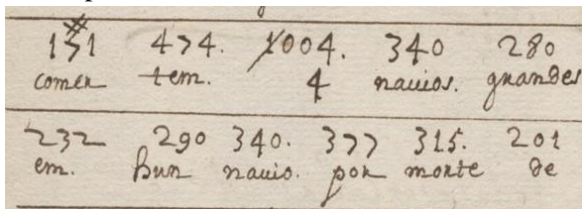 131 474. 1004. 340 280
comer tem. 4 nauios. grandes
232 290 340. 377 315. 201
em. hun nauio. por morte de